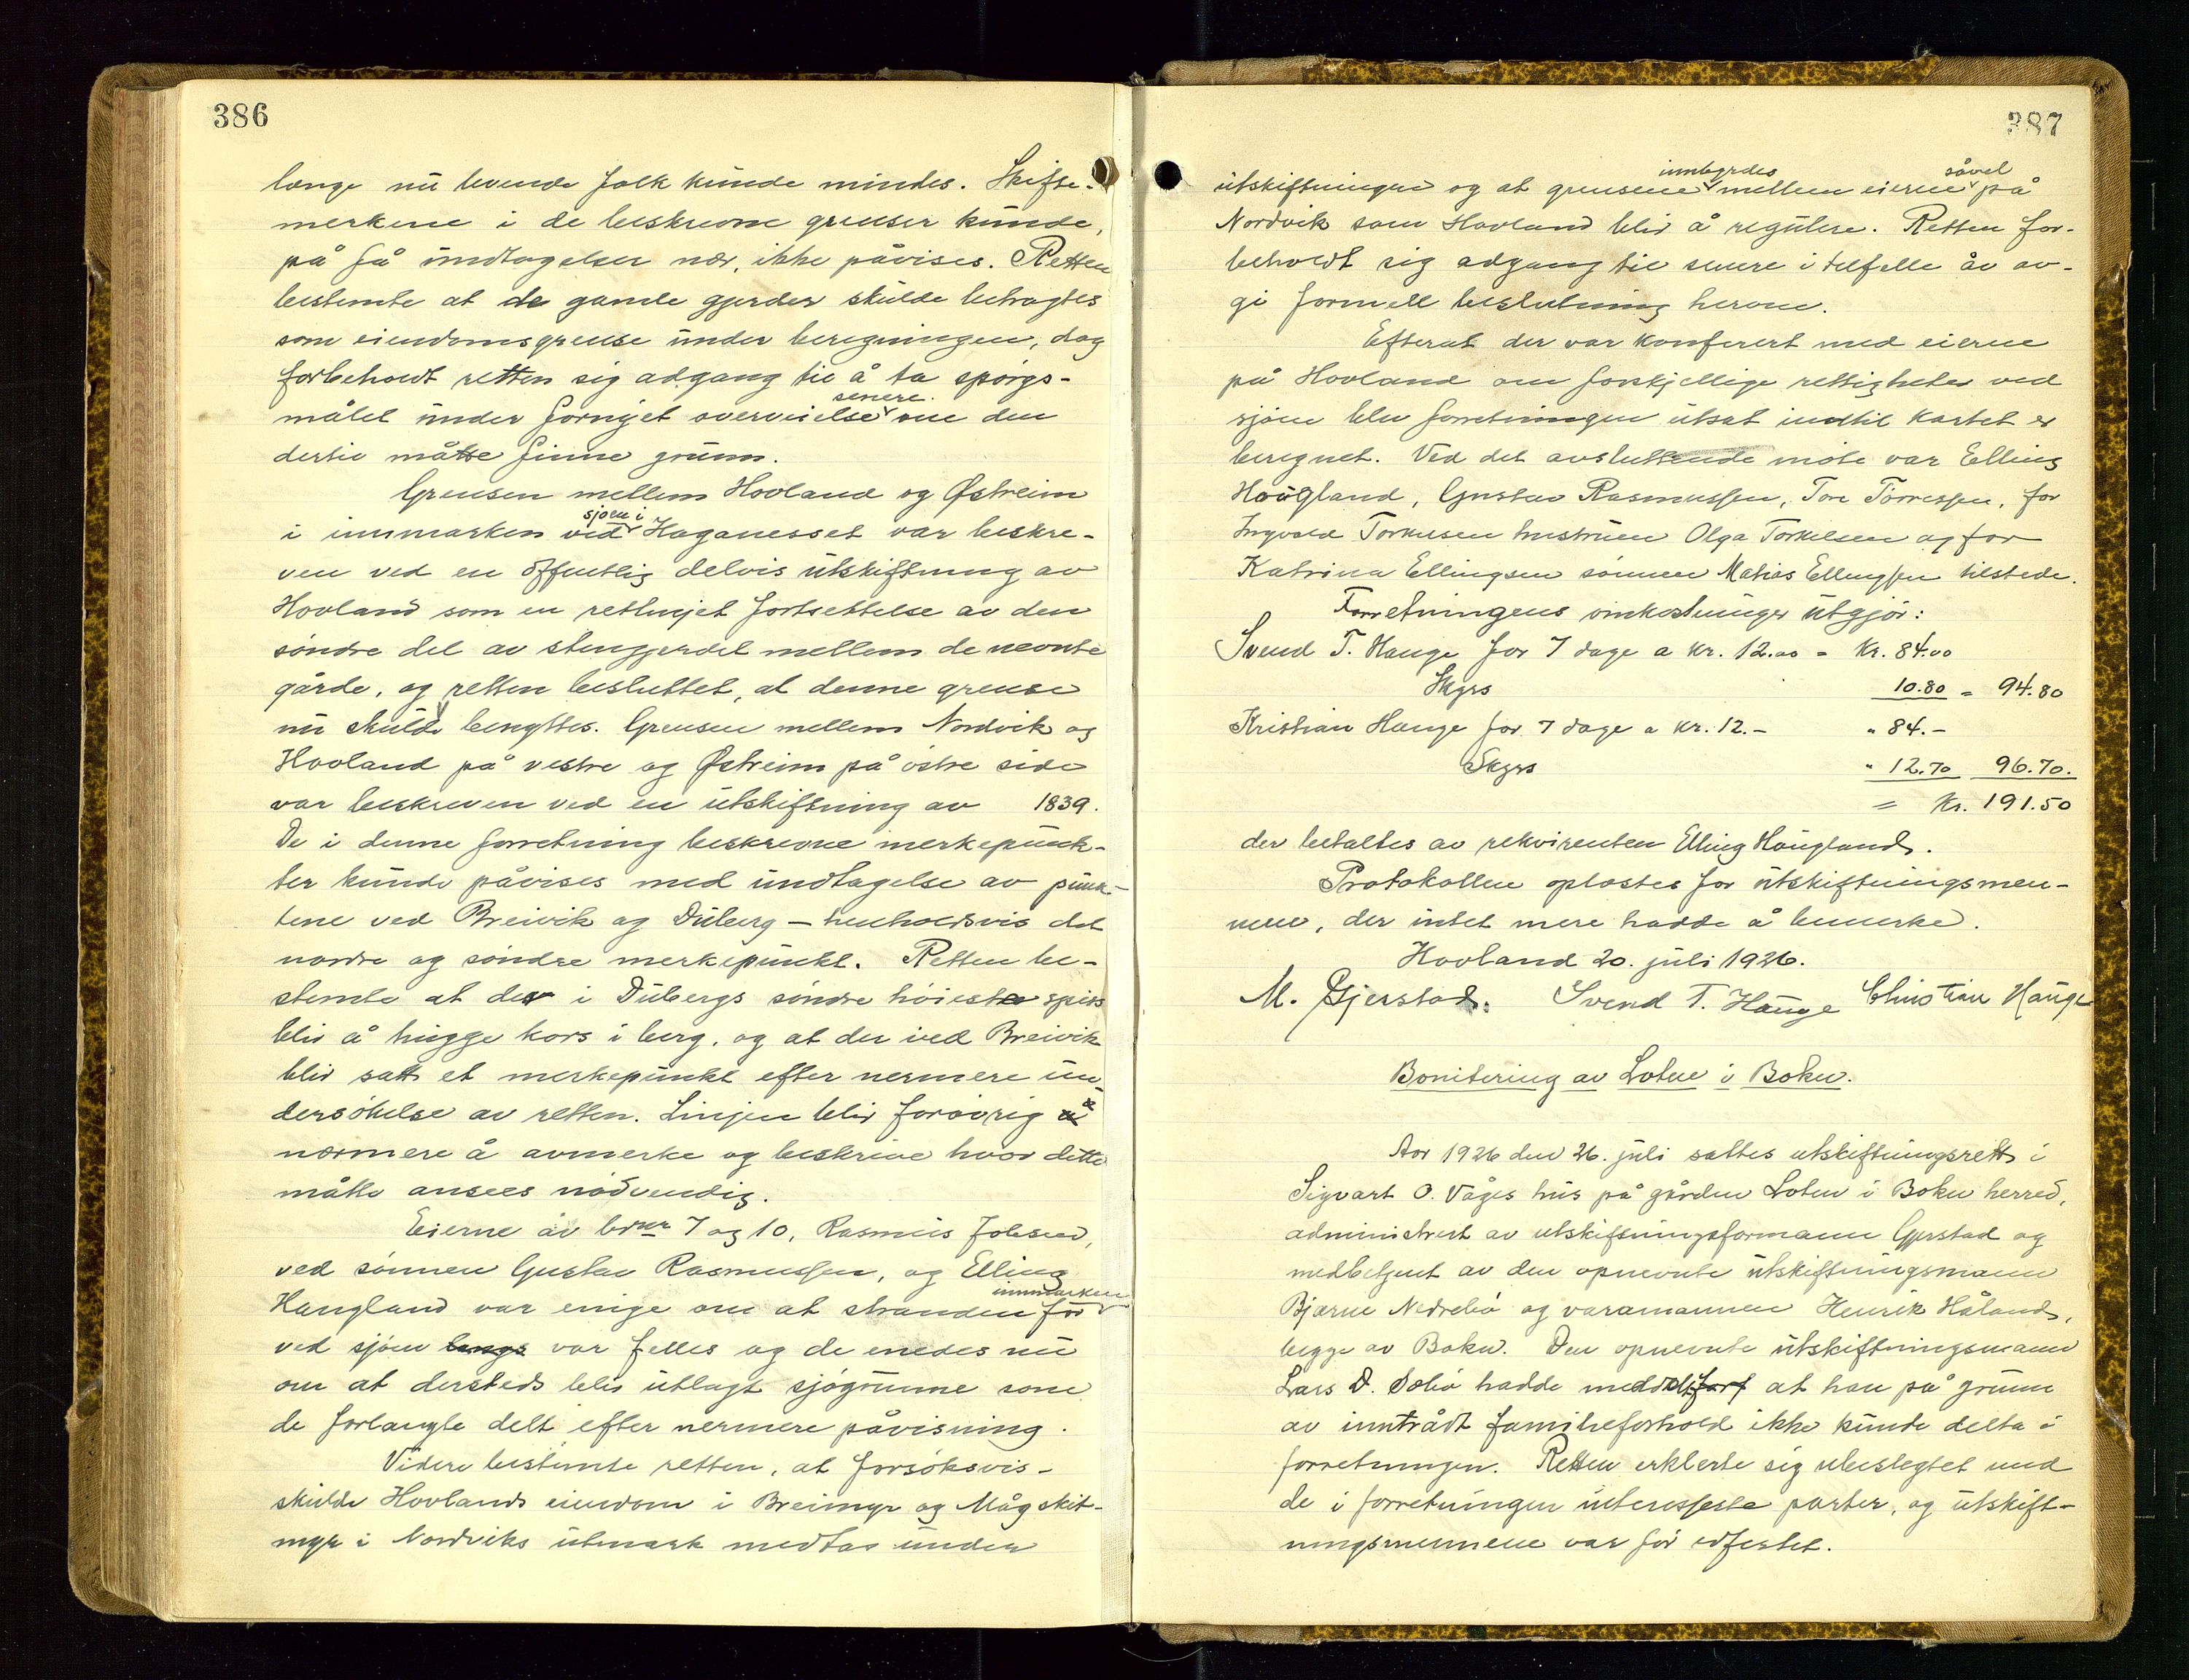 386
længe nu levende folk kunde mindes. Skifte-
merkene i de beskrevne grenser kunde,
på få undtagelser nær, ikke påvises. Retten
bestemte at de gamle gjerder skulde betragtes
som eiendomsgrense under beregningen, dog
forbeholdt retten sig adgang til å ta spørgs-
målet under fornyet overveielse senere om den
dertil måtte finne grunn.
Grensen mellem Hovland og Østreim
i innmarken ved sjøen i Haganesset var beskre-
ven ved en offentlig delvis utskiftning av
Hovland som en retlinjet fortsettelse av den
søndre del av stengjerdet mellem de nevnte
gårde, og retten besluttet, at denne grense
nu skulde benyttes. Grensen mellem Nordvik og
Hovland på vestre og Østreim på østre side
var beskreven ved en utskiftning av 1839.
De i denne forretning beskrevne merkepunk-
ter kunde påvises med undtagelse av punk-
tene ved Breivik og Duberg – henholdsvis det
nordre og søndre merkepunkt. Retten be-
stemte at der i Dubergs søndre høieste spiss
blir å hugge kors i berg, og at der ved Breivik
blir satt et merkepunkt efter nermere un-
dersøkelse av retten. Linjen blir forøvrig å
nærmere å avmerke og beskrive hvor dette
måtte ansees nødvendig.
Eierne av brnr 7 og 10, Rasmus Johsen,
ved sønnen Gustav Rasmussen, og Elling
Haugland var enige om at stranden for innmarken
ved sjøen langs var felles og de enedes nu
om at dersteds blir utlagt sjøgrunne som
de forlangte delt efter nermere påvisning.
Videre bestemte retten, at forsøksvis
skulde Hovlands eiendom i Breimyr og Mågskit-
myr i Nordviks utmark medtas under
387
utskiftningen og at grensene innbyrdes mellem eierne såvel på
Nordvik som Hovland blir å regulere. Retten for-
beholdt sig adgang til senere i tilfelle å av-
gi formell beslutning herom.
Efterat der var konferert med eierne
på Hovland om forskjellige rettigheter ved
sjøen blev forretningen utsat indtil kartet er
beregnet. Ved det avsluttende møte var Elling
Haugland, Gustav Rasmussen, Tore Tørressen, for
Ingvald Torkelsen hustruen Olga Torkelsen og for
Katrina Ellingsen sønnen Matias Ellingsen tilstede.
Forretningens omkostninger utgjør:
Svend T. Hauge for 7 dage a kr. 12.00 = Kr. 84.00
Skyss 10.80 = 94.80
Kristian Hauge for 7 dage a kr. 12.– " 84.–
Skyss " 12.70 96.70.
= Kr. 191.50
der betaltes av rekvirenten Elling Haugland.
Protokollen oplæstes for utskiftningsmen-
nene, der intet mere hadde å bemerke.
Hovland 20. juli 1926.
M. Gjerstad. Svend T. Hauge Christian Hauge
Bonitering av Loten i Bokn.
Aar 1926 den 26. juli sattes utskiftningsrett i
Sigvart O. Våges hus på gården Loten i Bokn herred,
administrert av utskiftningsformann Gjerstad og
medbetjent av den opnevnte utskiftningsmann
Bjarne Nedrebø og varamannen Henrik Håland,
begge av Bokn. Den opnevnte utskiftningsmann
Lars D. Sæbø hadde meddelt at han på grunn
av inntrådt familieforhold ikke kunde delta i
forretningen. Retten erklerte sig ubeslegtet med
de i forretningen interesserte parter, og utskift-
ningsmennene var før edfestet.